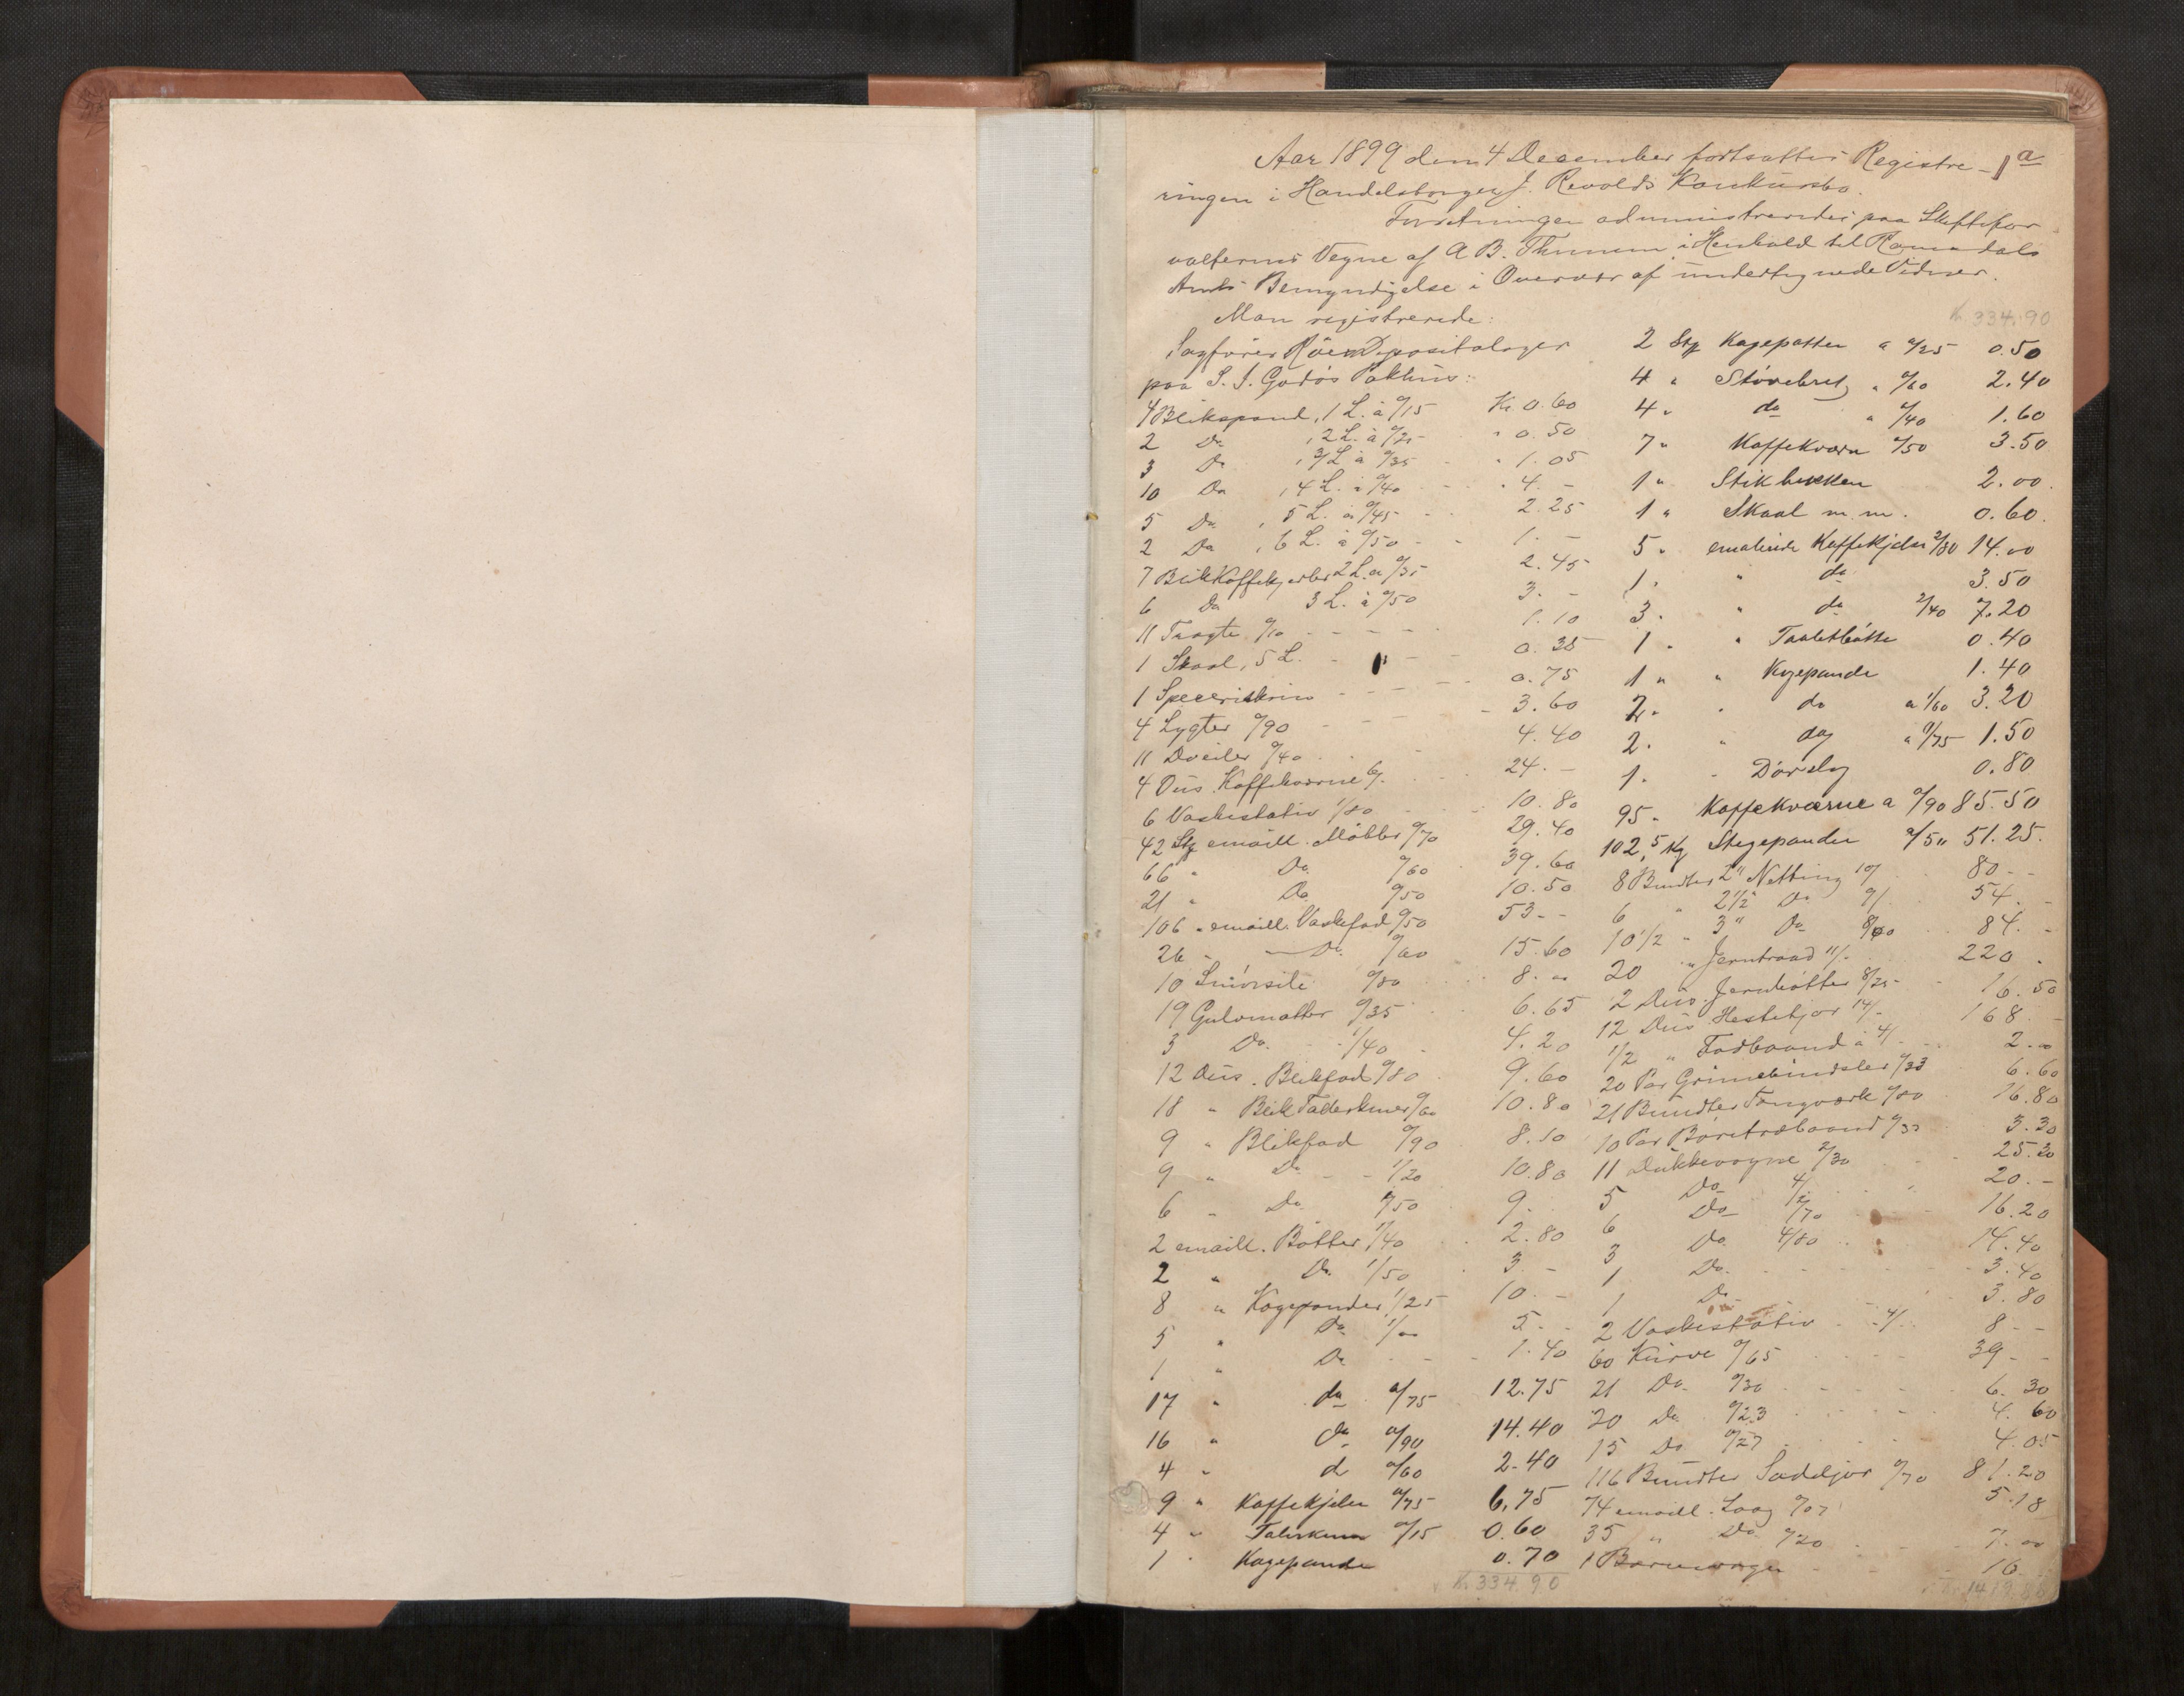 1 a
Aar 1899 den 4 December fortsattes Registre-
ringen i Handelsborger J. Revolds Konkursbo.
Forretningen administreredes paa Skiftefor
valterens Vegne af A B. Thunem i Henhold til Romsdals
Amts Bemyndigelse i Overvær af undertegnede Vidner.
Man registrerede:
Sagfører Depositalager
paa S. J. Pakhus:
4 Blikspand, 1 L. à 0/15 Kr 0.60
2 Do , 2 L. à 0/25 " 0.50
3 Do , 3 L à 0/35 " 1.05
10 Do , 4 L. à 0/40 " 4. -
5 Do , 5 L. à 0/45 2.25
2 Do , 6 L. à 0/50 1. -
7 Blik Kaffekjedler 2 L. a 0/35 2.45
6 Do 3 L. à 0/50 3. -
11 Tragte 0/10 1.10
1 Skaal, 5 L. 0.35
1 0.75
4 Lygter 0/90 3.60
11 Dveiler 0/40 4.40
4 Dus. Kaffekværne 6/. 24. -
6 Vaskestativ 1/80 10.80
42 Stk emaill. Møbber 0/70 29.40
66 " Do 0/60 39.60
21 " Do 0/50 10.50
106 " emaill. Vaskefad 0/50 53 - -
26 " Do. 0/60 15.60
10 0/80 8. "
19 Gulvmatter 0/35 6.65
3 Do. 1/40 4.20
12 Dus. Blikfad 0/80 9.60
18 " Blik Tallerkner 0/60 10.80
9 " Blikfad 0/90 8.10
9 " Do 1/20 10.80
6 " Do 1/50 9.
2 emaill. Bøtter 1/40 2.80
2 " Do. 1/50 3 -
8 " Kogepander 1/25 10. -
5 " Do 1/00 5. -
1 " Do 1.40
17 " do a/75 12.75
16 " do a/90 14.40
4 " do a/60 2.40
9 " Kaffekjeler a/75 6.75
4 " Talerkener a/15 0.60
1 " Kogepande 0.70
Kr. 334.90
Kr. 334.90
2 Stk Kagepotter a 0/25 0.50
4 " a 0/60 2.40
4 " do a 0/40 1.60
7 " Kaffekværn 0/50 3.50
1 " Stikbækken 2.00
1 " Skaal m. m. 0.60
5 " Kaffekjeler 2/80 14.00
1 " " do 3.50
3 " " do 2/40 7.20
1 " " 0.40
1 " " Kogepande 1.40
2 " " do a 1/60 3.20
2 " " do a 0/75 1.50
1 " " Dørslag 0.80
95 " Kaffekværne a 0/90 85.50
102,5 Kg Stegepander a/50 51.25
8 Bundter 2" Netting 10/ 80 - -
6 " 2 1/2" Do 9/ 54. -
10 1/2 " 3" Do 8/00 84. -
20 " Jerntraad 11/. 220 "
2 Dus. Jernbøtter 8/25 16.50
12 Dus Hestetjor 14/- 168 -
1/2 " Fadbaand à 4/ 2."
20 Par Grimebindsler 0/33 6.60
21 Bundter Tangværk 0/80 16.80
10 Par Børetræbaand 0/33 3.30
11 Dukkevogne 2/30 25.30
5 Do 4/ 20. -
6 Do 2/70 16.20
3 Do. 4/80 14.40
1 Do. 3.40
1 Do 3.80
2 Vaskestativ 4/ 8 - -
60 Kurve 0/65 39 - -
21 Do. 0/30 6.30
20 Do. 0/23 4.60
15 Do 0/27 4.05
116 Bundter 0/70 81.20
74 emaill. Laag 0/07 5.18
35 " Do. 0/20 7.00
1 Barnevogn 16